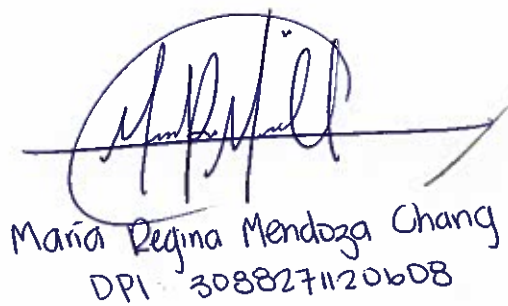 María Regina Mendoza Chang
DPI 3088271120608